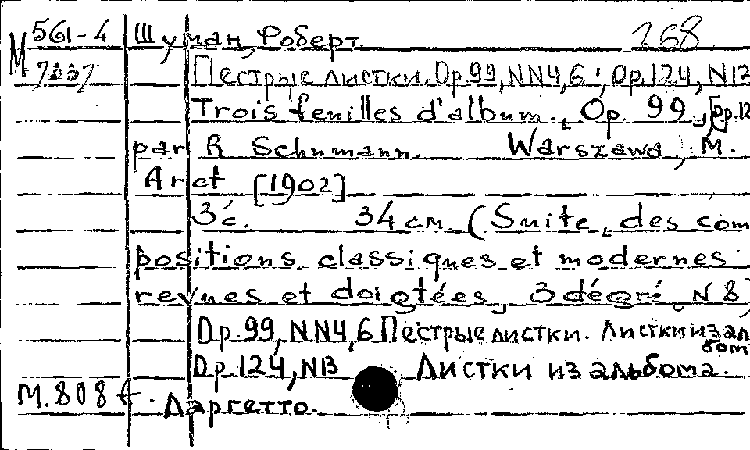 561-4 Шуман, Роберт 268
М 7337 Пестрые листки. Op.99, NN4,6; Op.124, N13
Trois feuilles d'album. Op. 99, [Op.12
par R Schumann. Warszawa, M.
Arct [1902]
3с. 34 см (Suite des com
positions classiques et modernes
revues et doigtées, 3 dégré. N 8)
Op.99, NN4,6 Пестрые листки. Листки из аль
бом
Op.124, N13 Листки из альбома.
М.808 Ларгетто.